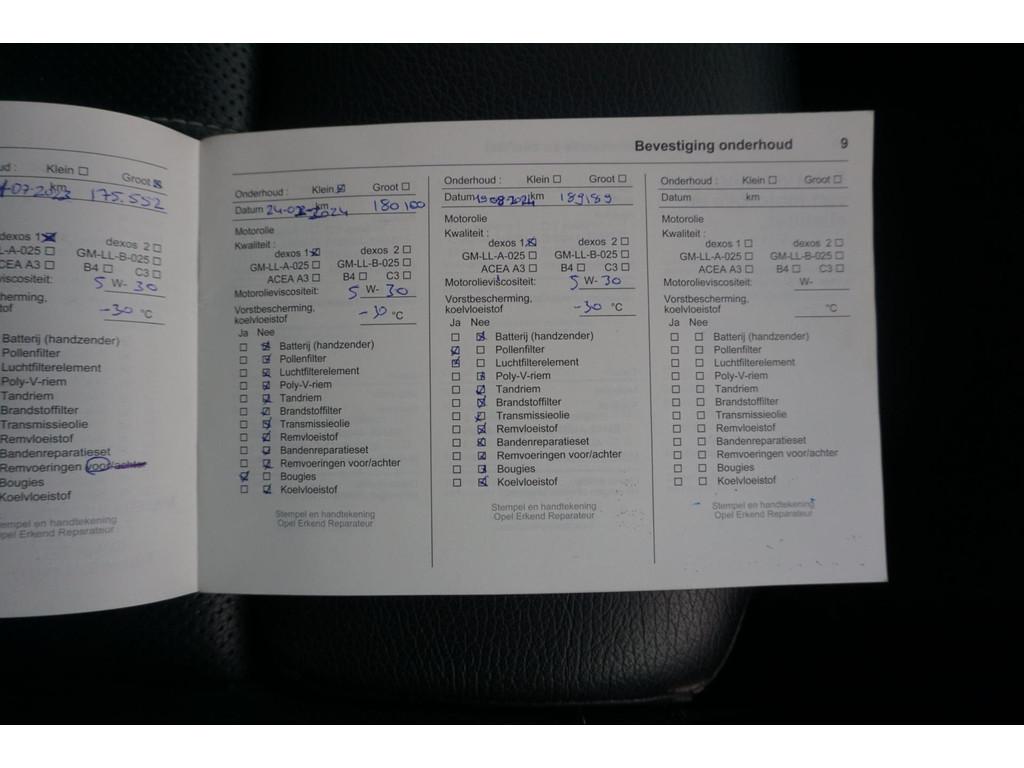 Bevestiging onderhoud 9
Klein
Groot
km 175.552
dexos 1 dexos 2
GM-LL-B-025
ACEA A3 B4 C3
5 W- 30
-30 °C
Batterij (handzender)
Pollenfilter
Luchtfilterelement
Poly-V-riem
Tandriem
Brandstoffilter
Transmissieolie
Remvloeistof
Bandenreparatieset
Remvoeringen voor/achter
Bougies
Koelvloeistof
Onderhoud : Klein Groot
Datum km 180 100
Motorolie
Kwaliteit :
dexos 1 dexos 2
GM-LL-A-025 GM-LL-B-025
ACEA A3 B4 C3
Motorolieviscositeit: 5 W- 30
Vorstbescherming,
koelvloeistof -30 °C
Ja Nee
Batterij (handzender)
Pollenfilter
Luchtfilterelement
Poly-V-riem
Tandriem
Brandstoffilter
Transmissieolie
Remvloeistof
Bandenreparatieset
Remvoeringen voor/achter
Bougies
Koelvloeistof
Stempel en handtekening
Opel Erkend Reparateur
Onderhoud : Klein Groot
Datum 19-08-2024 km 189189
Motorolie
Kwaliteit :
dexos 1 dexos 2
GM-LL-A-025 GM-LL-B-025
ACEA A3 B4 C3
Motorolieviscositeit: 5 W- 30
Vorstbescherming,
koelvloeistof -30 °C
Ja Nee
Batterij (handzender)
Pollenfilter
Luchtfilterelement
Poly-V-riem
Tandriem
Brandstoffilter
Transmissieolie
Remvloeistof
Bandenreparatieset
Remvoeringen voor/achter
Bougies
Koelvloeistof
Stempel en handtekening
Opel Erkend Reparateur
Onderhoud : Klein Groot
Datum km
Motorolie
Kwaliteit :
dexos 1 dexos 2
GM-LL-A-025 GM-LL-B-025
ACEA A3 B4 C3
Motorolieviscositeit: W-
Vorstbescherming,
koelvloeistof °C
Ja Nee
Batterij (handzender)
Pollenfilter
Luchtfilterelement
Poly-V-riem
Tandriem
Brandstoffilter
Transmissieolie
Remvloeistof
Bandenreparatieset
Remvoeringen voor/achter
Bougies
Koelvloeistof
Stempel en handtekening
Opel Erkend Reparateur